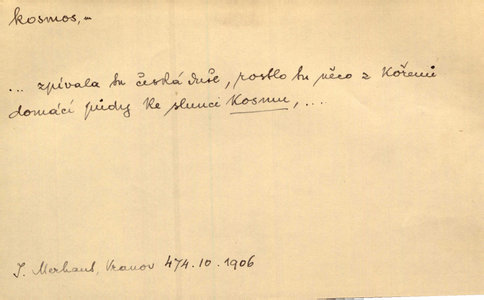 kosmos,–
... zpívala tu česká duše, rostlo tu něco z kořenů
domácí půdy ke slunci Kosmu, ...
J. Merhaut, Vranov 474.10.1906